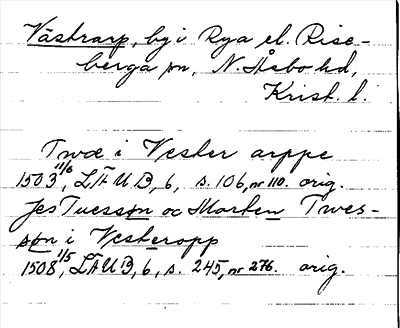 Västrarp, by i Rya el. Rise-
berga sn, N. Åsbo hd,
Krist. l.
Twæ i Vester arppe
1503 11/6, LÄUB, 6, s. 106, nr 110. orig.
Jes Tuesson oc Marten Twes-
søn i Vesteropp
1508 1/5, LÄUB, 6, s. 245, nr 276. orig.